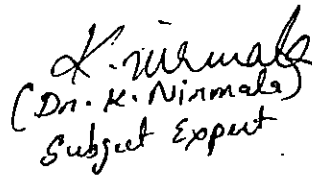 K. Nirmala
(Dr. K. Nirmala)
Subject Expert